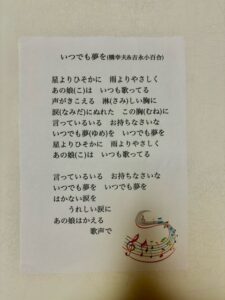 いつでも夢を(橋幸夫&吉永小百合)
星よりひそかに　雨よりやさしく
あの娘(こ)は　いつも歌ってる
声がきこえる　淋(さみ)しい胸に
涙(なみだ)にぬれた　この胸(むね)に
言っているいる　お持ちなさいな
いつでも夢(ゆめ)を　いつでも夢を
星よりひそかに　雨よりやさしく
あの娘は　いつも歌ってる
言っているいる　お持ちなさいな
いつでも夢を　いつでも夢を
はかない涙を
うれしい涙に
あの娘はかえる
歌声で